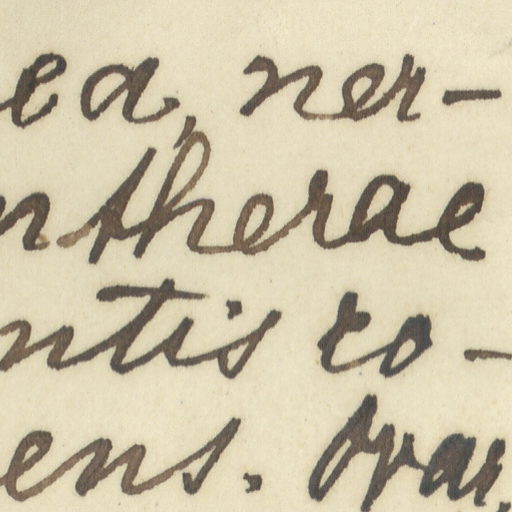 ea, ner-
ntherae
ntis ro-
ens. Ovar.